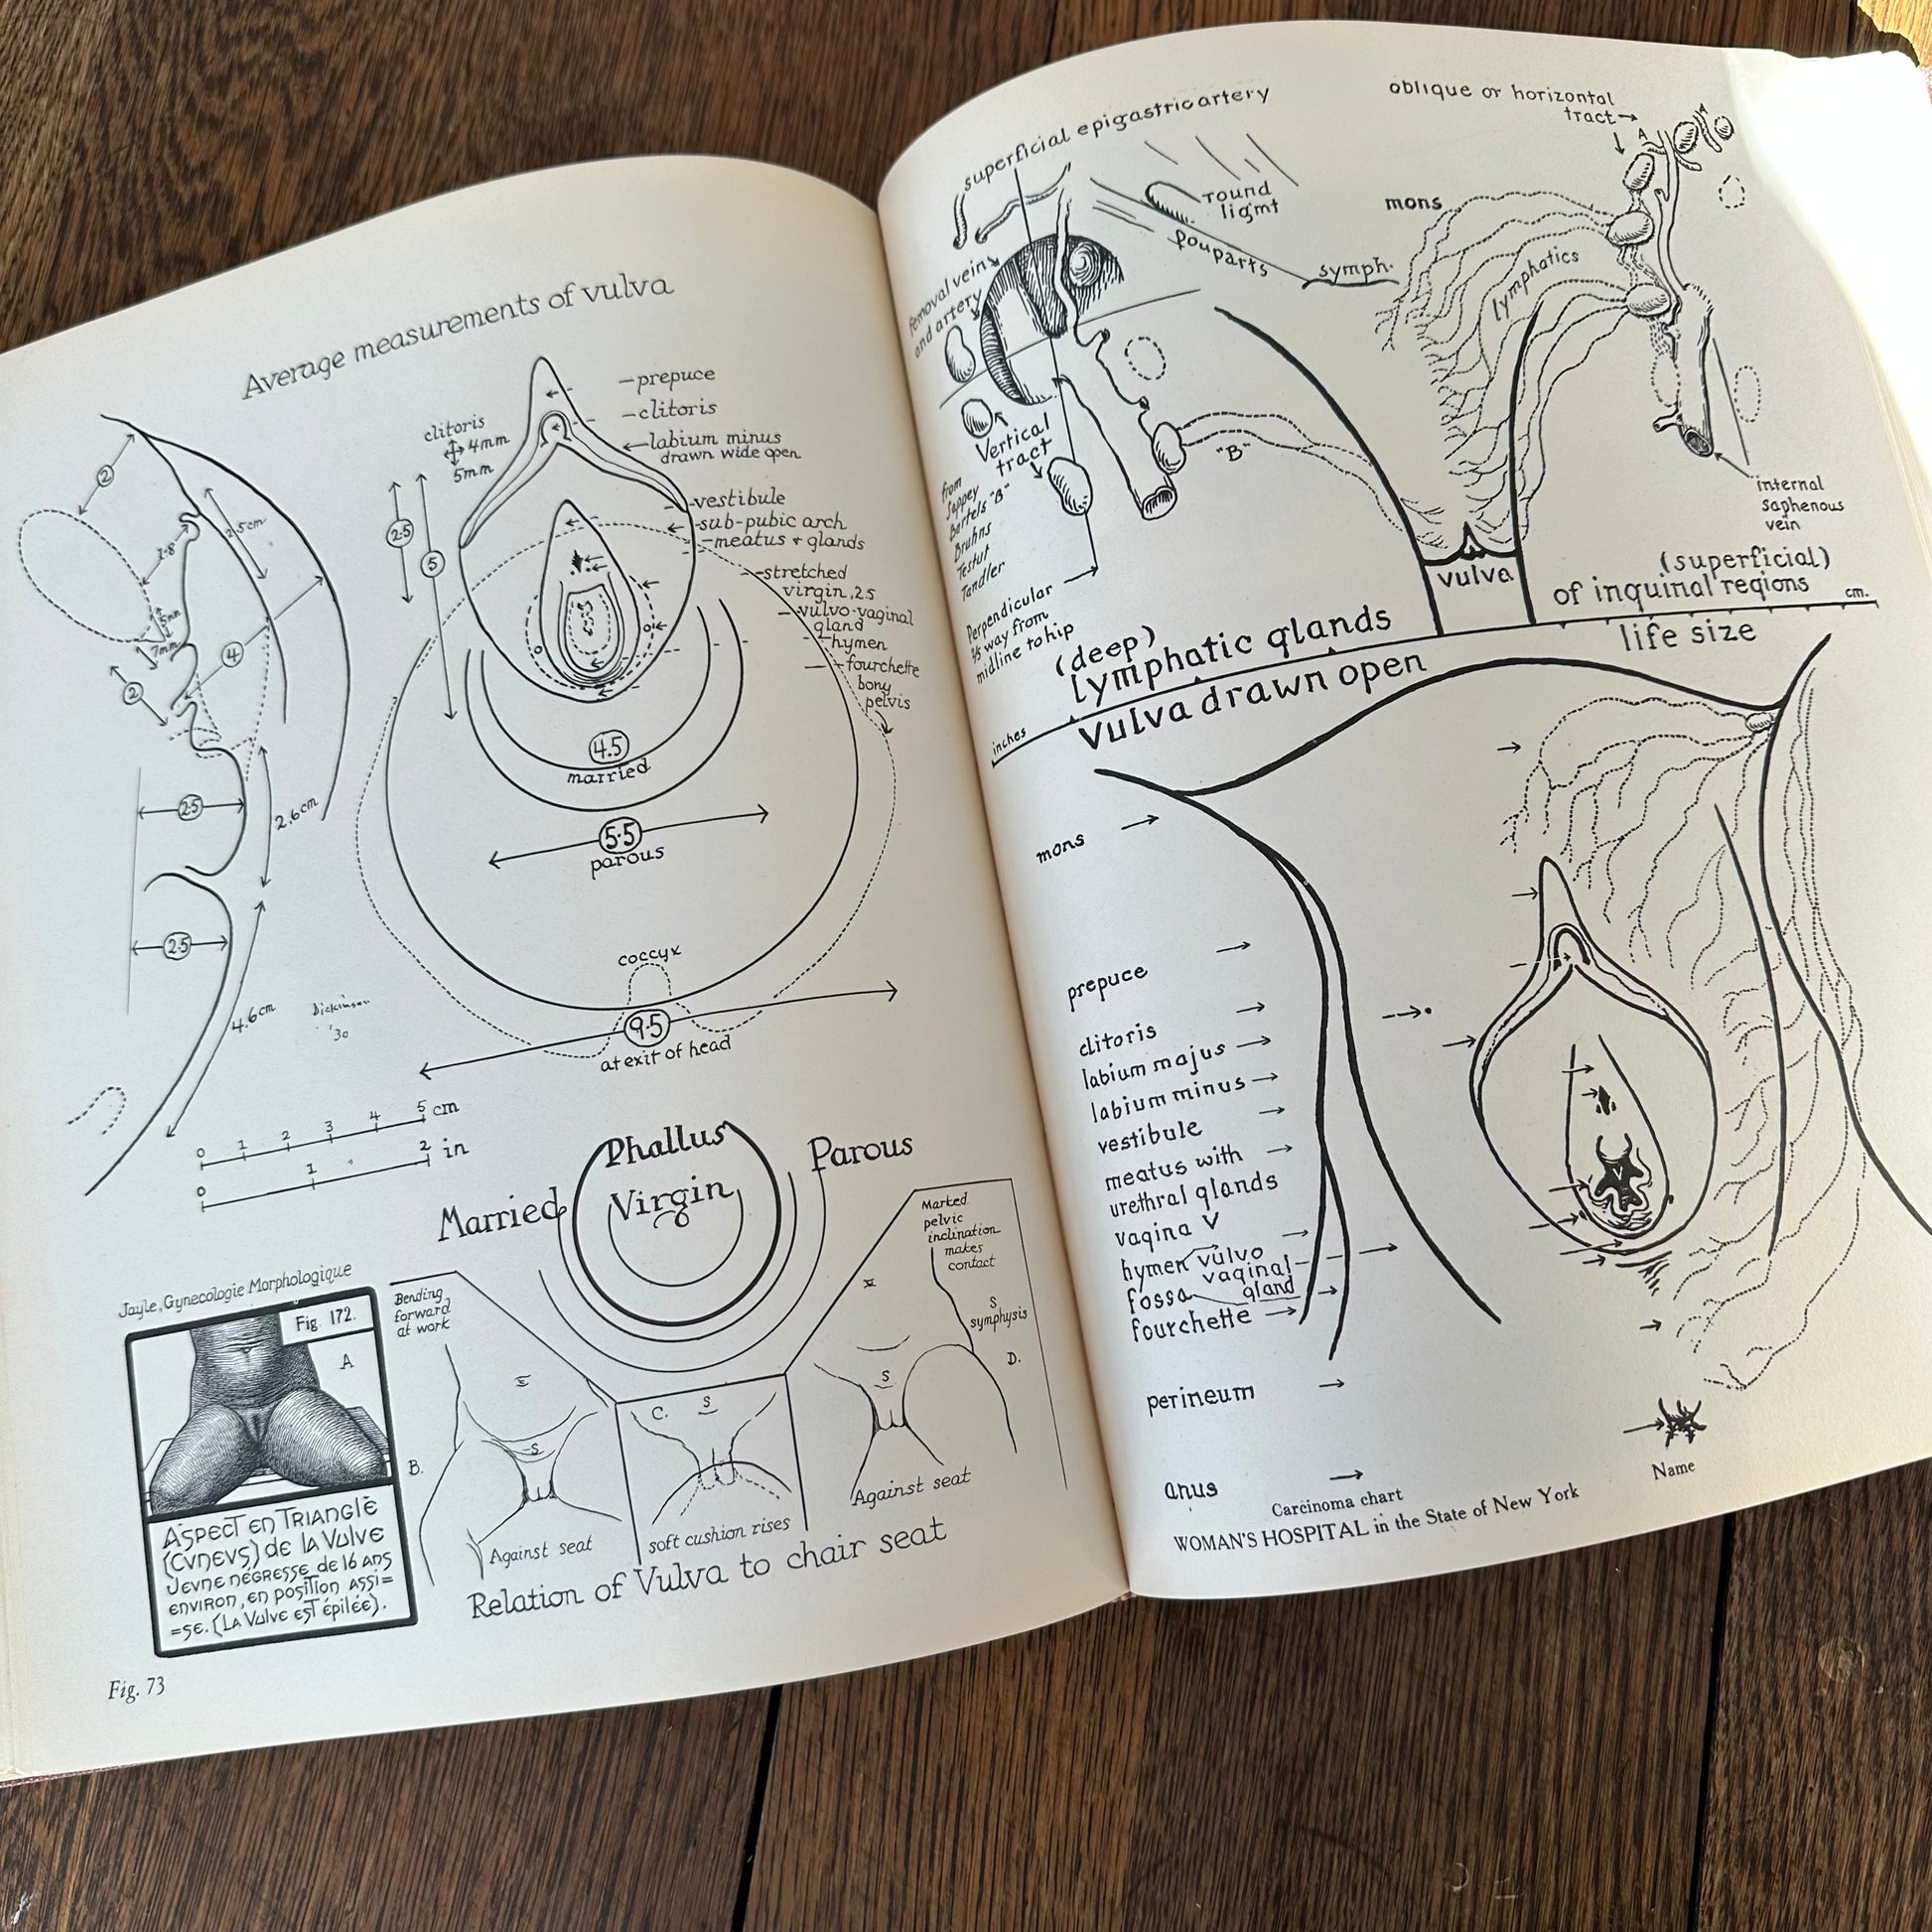 Average measurements of vulva
prepuce
clitoris
4mm
5mm
clitoris
labium minus
drawn wide open
vestibule
sub-pubic arch
meatus + glands
stretched
virgin, 2.5
vulvo-vaginal
gland
hymen
fourchette
bony
pelvis
2
2.5cm
1.8
5mm
7mm
4
2
2.5
5
2.5
2.6cm
2.5
4.6cm
4.5
married
5.5
parous
coccyx
9.5
at exit of head
Dickinson
'30
0 1 2 3 4 5 cm
0 1 2 in
Phallus
Virgin
Married
Parous
Jayle, Gynecologie Morphologique
Fig. 172.
A
ASPECT EN TRIANGLE
(CUNEUS) de LA VULVE
JEUNE NÉGRESSE de 16 ANS
ENVIRON, EN POSITION ASSI=
=SE. (LA VULVE EST épilée).
Bending
forward
at work
S
B.
Against seat
C.
S
soft cushion rises
Marked
pelvic
inclination
makes
contact
S
symphysis
D.
S
Against seat
Relation of Vulva to chair seat
Fig. 73
superficial epigastric artery
oblique or horizontal
tract
A
A
round
ligmt
Pouparts
symph.
mons
lymphatics
femoral vein
and artery
Vertical
tract
"B"
from
Sappey
Bartels "B"
Bruhns
Testut
Tandler
Perpendicular
⅓ way from
midline to hip
internal
saphenous
vein
vulva
(deep)
lymphatic glands
(superficial)
of inguinal regions
cm.
life size
inches
Vulva drawn open
mons
prepuce
clitoris
labium majus
labium minus
vestibule
meatus with
urethral glands
vagina V
hymen
vulvo
vaginal
gland
fossa
fourchette
V
perineum
anus
Name
Carcinoma chart
WOMAN'S HOSPITAL in the State of New York